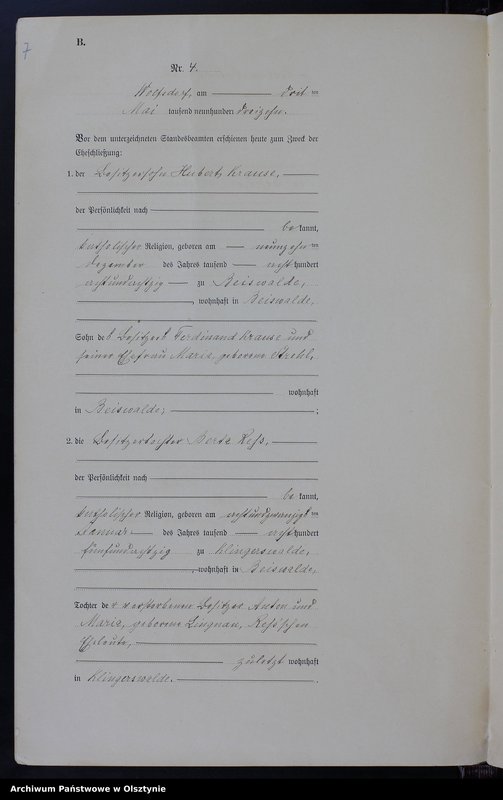 7
B.
Nr. 4.
Wolfsdorf, am dritten
Mai tausend neunhundert dreizehn.
Vor dem unterzeichneten Standesbeamten erschienen heute zum Zweck der
Eheschließung:
1. der Besitzersohn Hubert Krause,
der Persönlichkeit nach
bekannt,
katholischer Religion, geboren am neunzehnten
Dezember des Jahres tausend achthundert
achtundachtzig zu Beiswalde,
, wohnhaft in Beiswalde,
Sohn des Besitzers Ferdinand Krause und
seiner Ehefrau Maria, geborene
wohnhaft
in Beiswalde;
2. die Besitzertochter
der Persönlichkeit nach
bekannt,
katholischer Religion, geboren am achtundzwanzigsten
Januar des Jahres tausend achthundert
fünfundachtzig zu Klingerswalde,
, wohnhaft in Beiswalde,
Tochter der verstorbenen Besitzer Anton und
Maria, geborene Lingnau,
Eheleute,
zuletzt wohnhaft
in Klingerswalde.
Archiwum Państwowe w Olsztynie